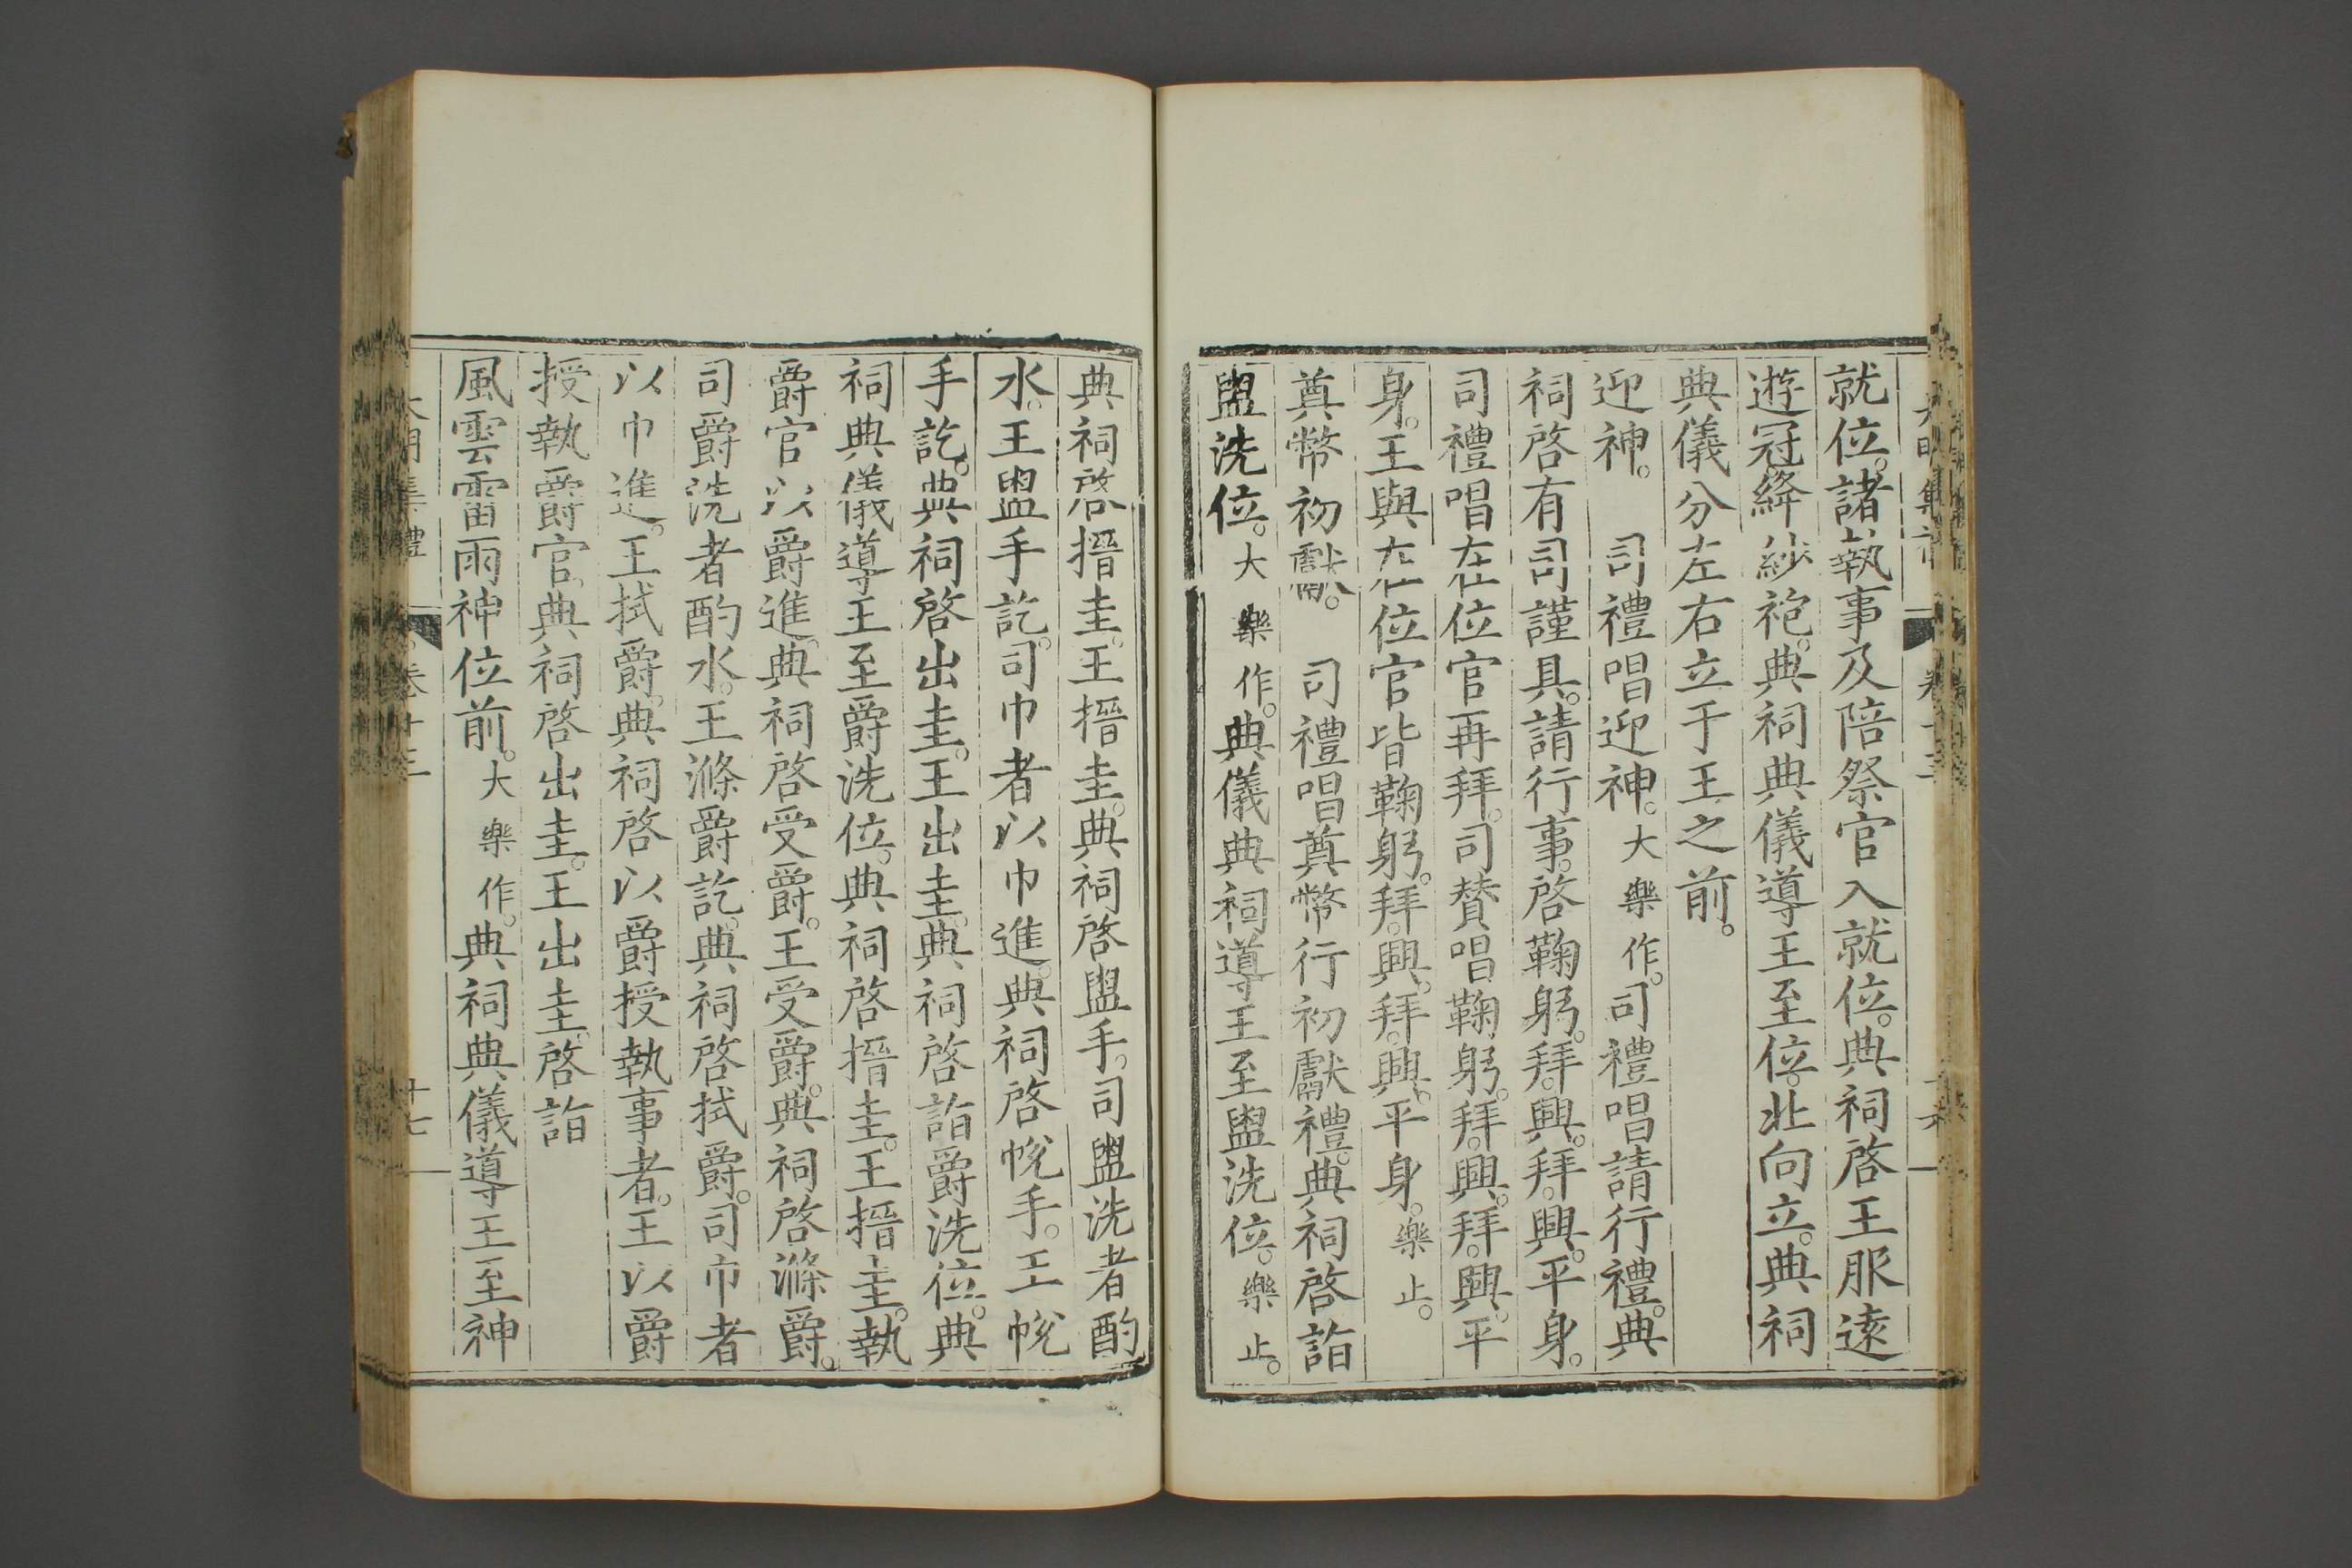 就位。諸執事及陪祭官入就位。典祠啓王服遠
遊冠絳紗袍。典祠典儀導王至位。北向立。典祠
典儀分左右立于王之前。
迎神。　司禮唱迎神。大樂作。司禮唱請行禮。典
祠啓有司謹具。請行事。啓鞠躬。拜。興。拜。興。平身。
司禮唱在位官再拜。司贊唱鞠躬。拜。興。拜。興。平
身。王與在位官皆鞠躬。拜。興。拜。興。平身。樂止。
奠幣初獻。　司禮唱奠幣行初獻禮。典祠啓詣
盥洗位。大樂作。典儀典祠導王至盥洗位。樂止。
典祠啓搢圭。王搢圭。典祠啓盥手。司盥洗者酌
水。王盥手訖。司巾者以巾進。典祠啓帨手。王帨
手訖。典祠啓出圭。王出圭。典祠啓詣爵洗位。典
祠典儀導王至爵洗位。典祠啓搢圭。王搢圭。執
爵官以爵進。典祠啓受爵。王受爵。典祠啓滌爵。
司爵洗者酌水。王滌爵訖。典祠啓拭爵。司巾者
以巾進。王拭爵。典祠啓以爵授執事者。王以爵
授執爵官。典祠啓出圭。王出圭。啓詣
風雲雷雨神位前。大樂作。典祠典儀導王至神
大明集禮　卷十三　十七